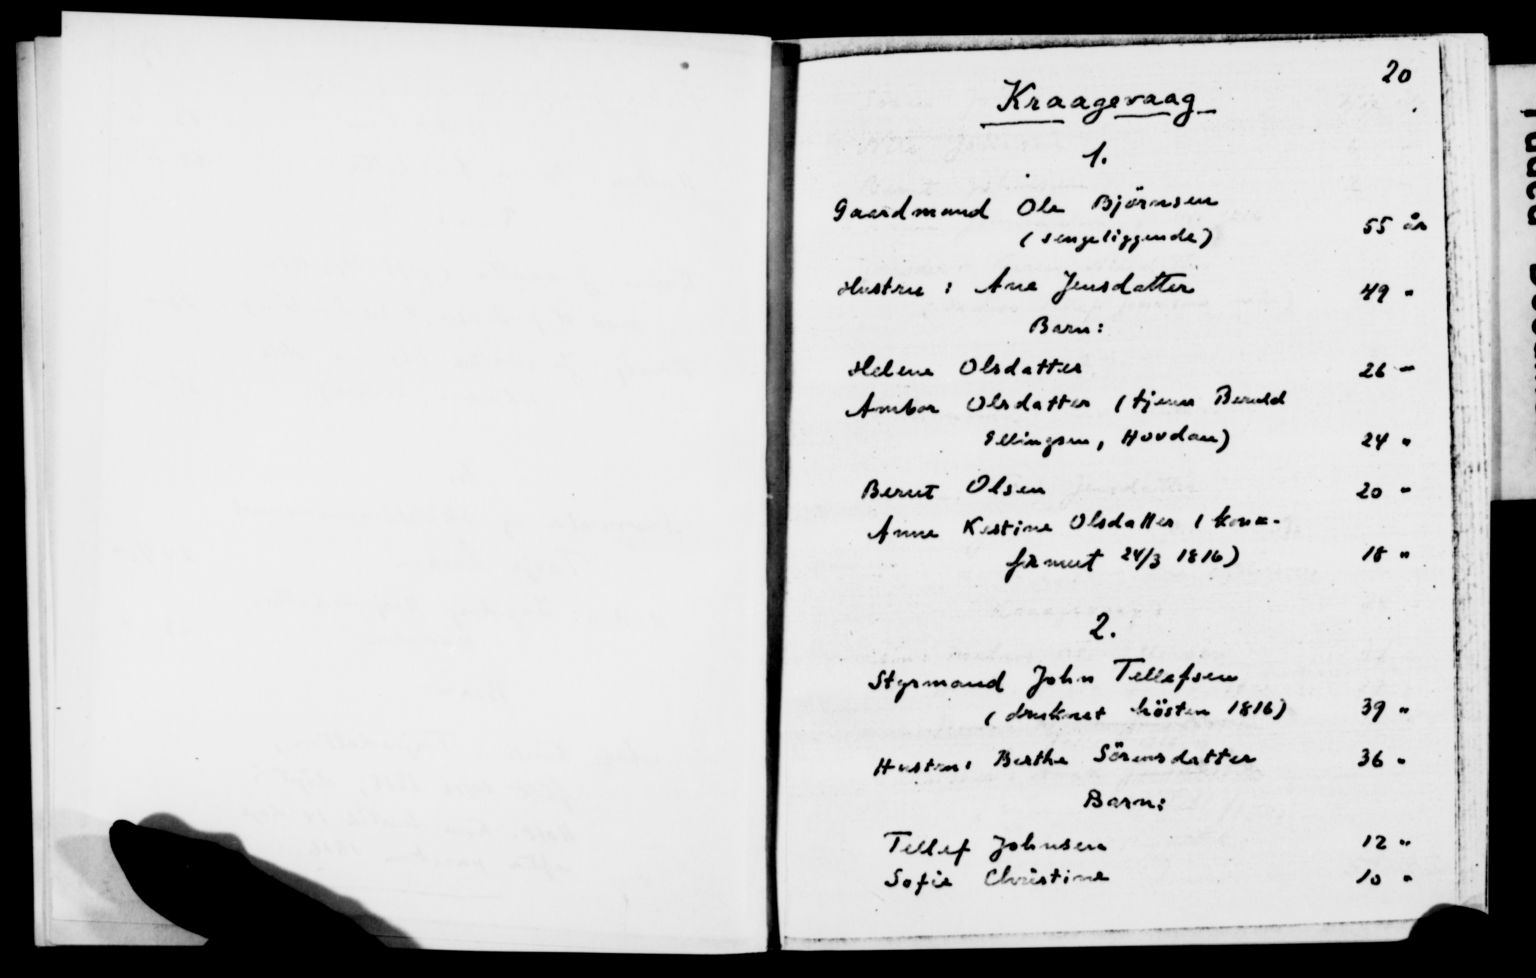 20
Kraagevaag
1.
Gaardmand Ole Björnsen
(sengeliggende) 55 år
Hustru : Ane Jensdatter 49 "
Barn:
Helene Olsdatter 26 "
Anbor Olsdatter (tjener Berudd
Ellingsen, Hovdan) 24 "
Berut Olsen 20 "
Anne Kistine Olsdatter (kon-
firmeet 24/3 1816) 18 "
2.
Styrmand John Tellefsen
(druknet hösten 1816) 39 "
Hustru: Berthe Sörensdatter 36 "
Barn:
Tellef Johnsen 12 "
Sofie Christine 10 "